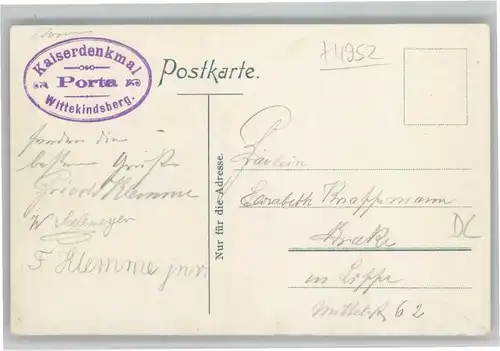 Kaiserdenkmal
Porta
Wittekindsberg.
Postkarte.
t4952
Nur für die Adresse.
senden die
besten Grüße
Friedr. Klemme
W
F. Klemme jnr.
Fräulein
Elisabeth
Brake
in Lippe
Mittelstr. 62
DL